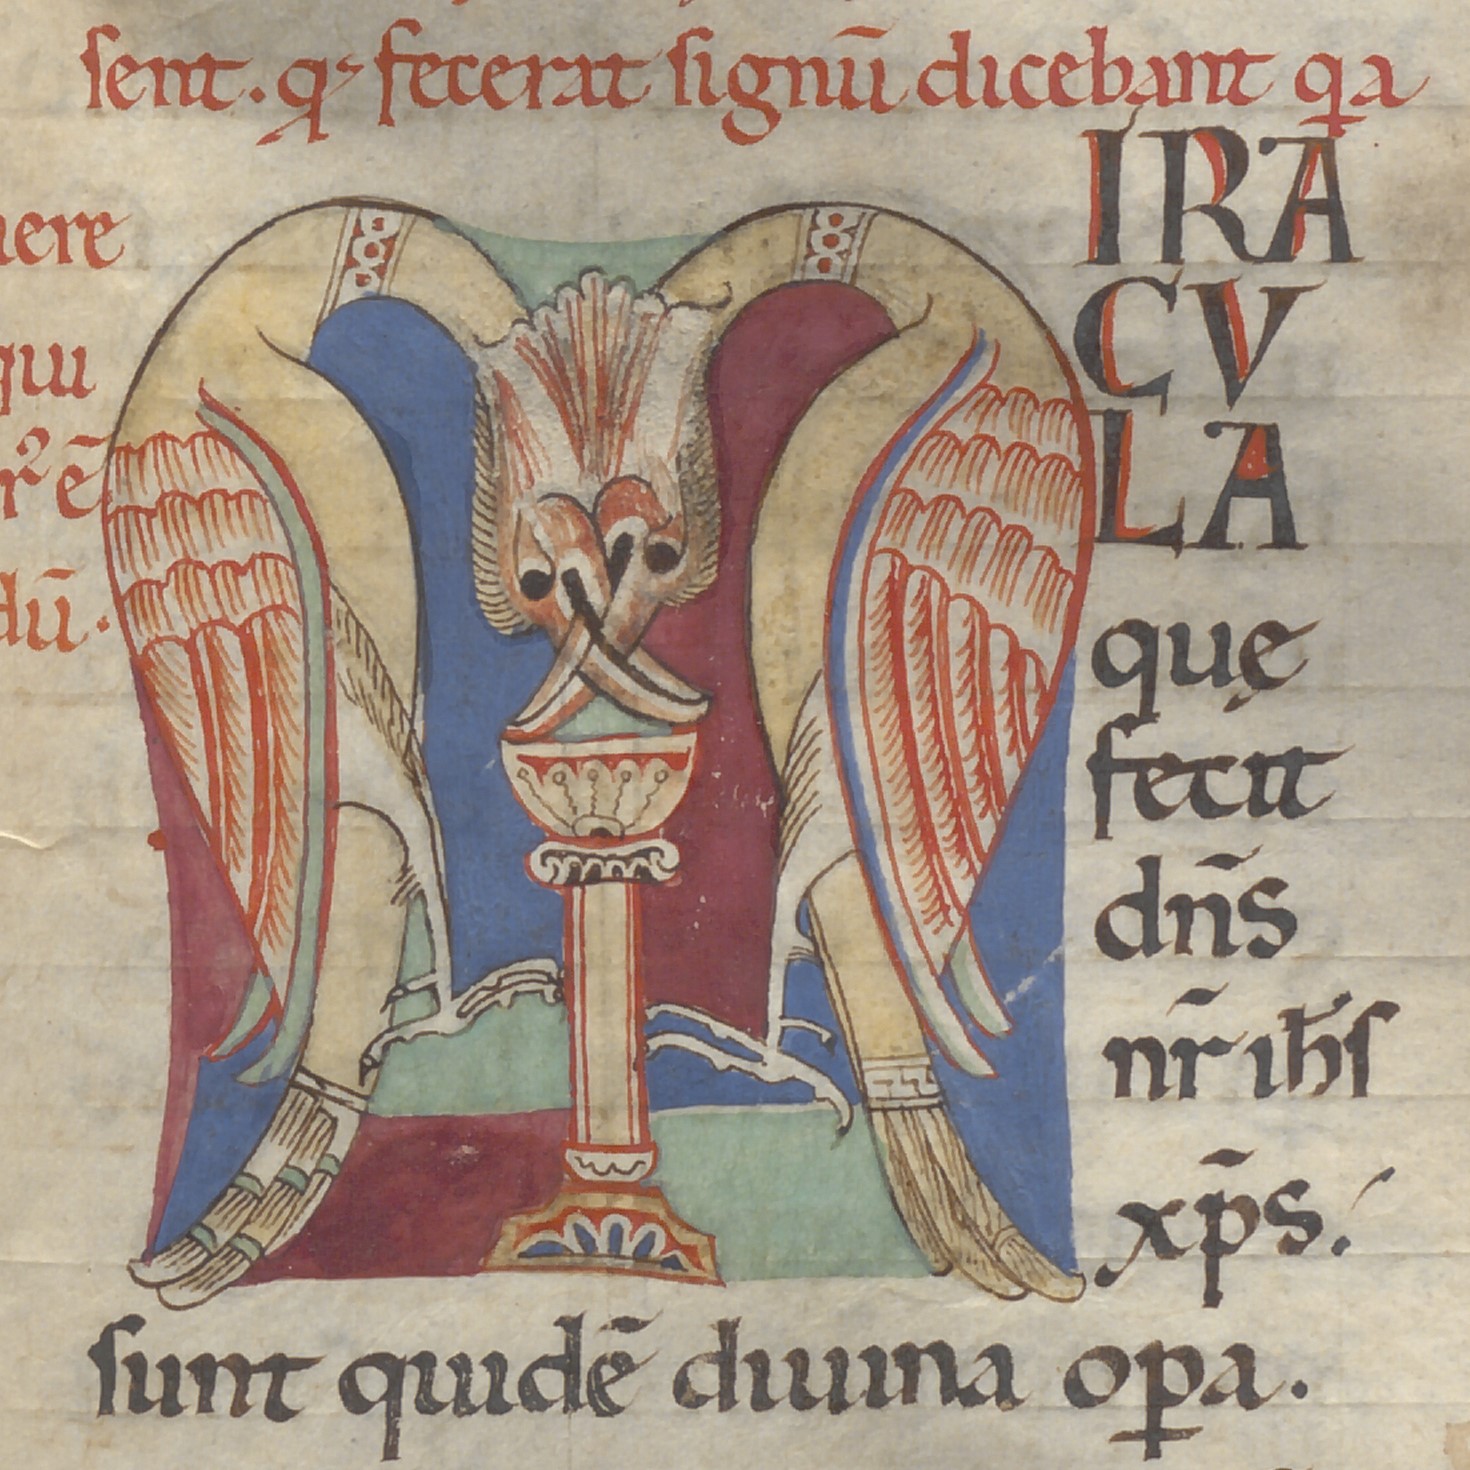 sent. qƺ fecerat signū dicebant qa
uere
qui
r̊ ē
dū.
M IRA
CV
LA
quę
fecit
dn̄s
nr̄ ih̄s
xp̄s.
sunt quidē diuina oꝑa.